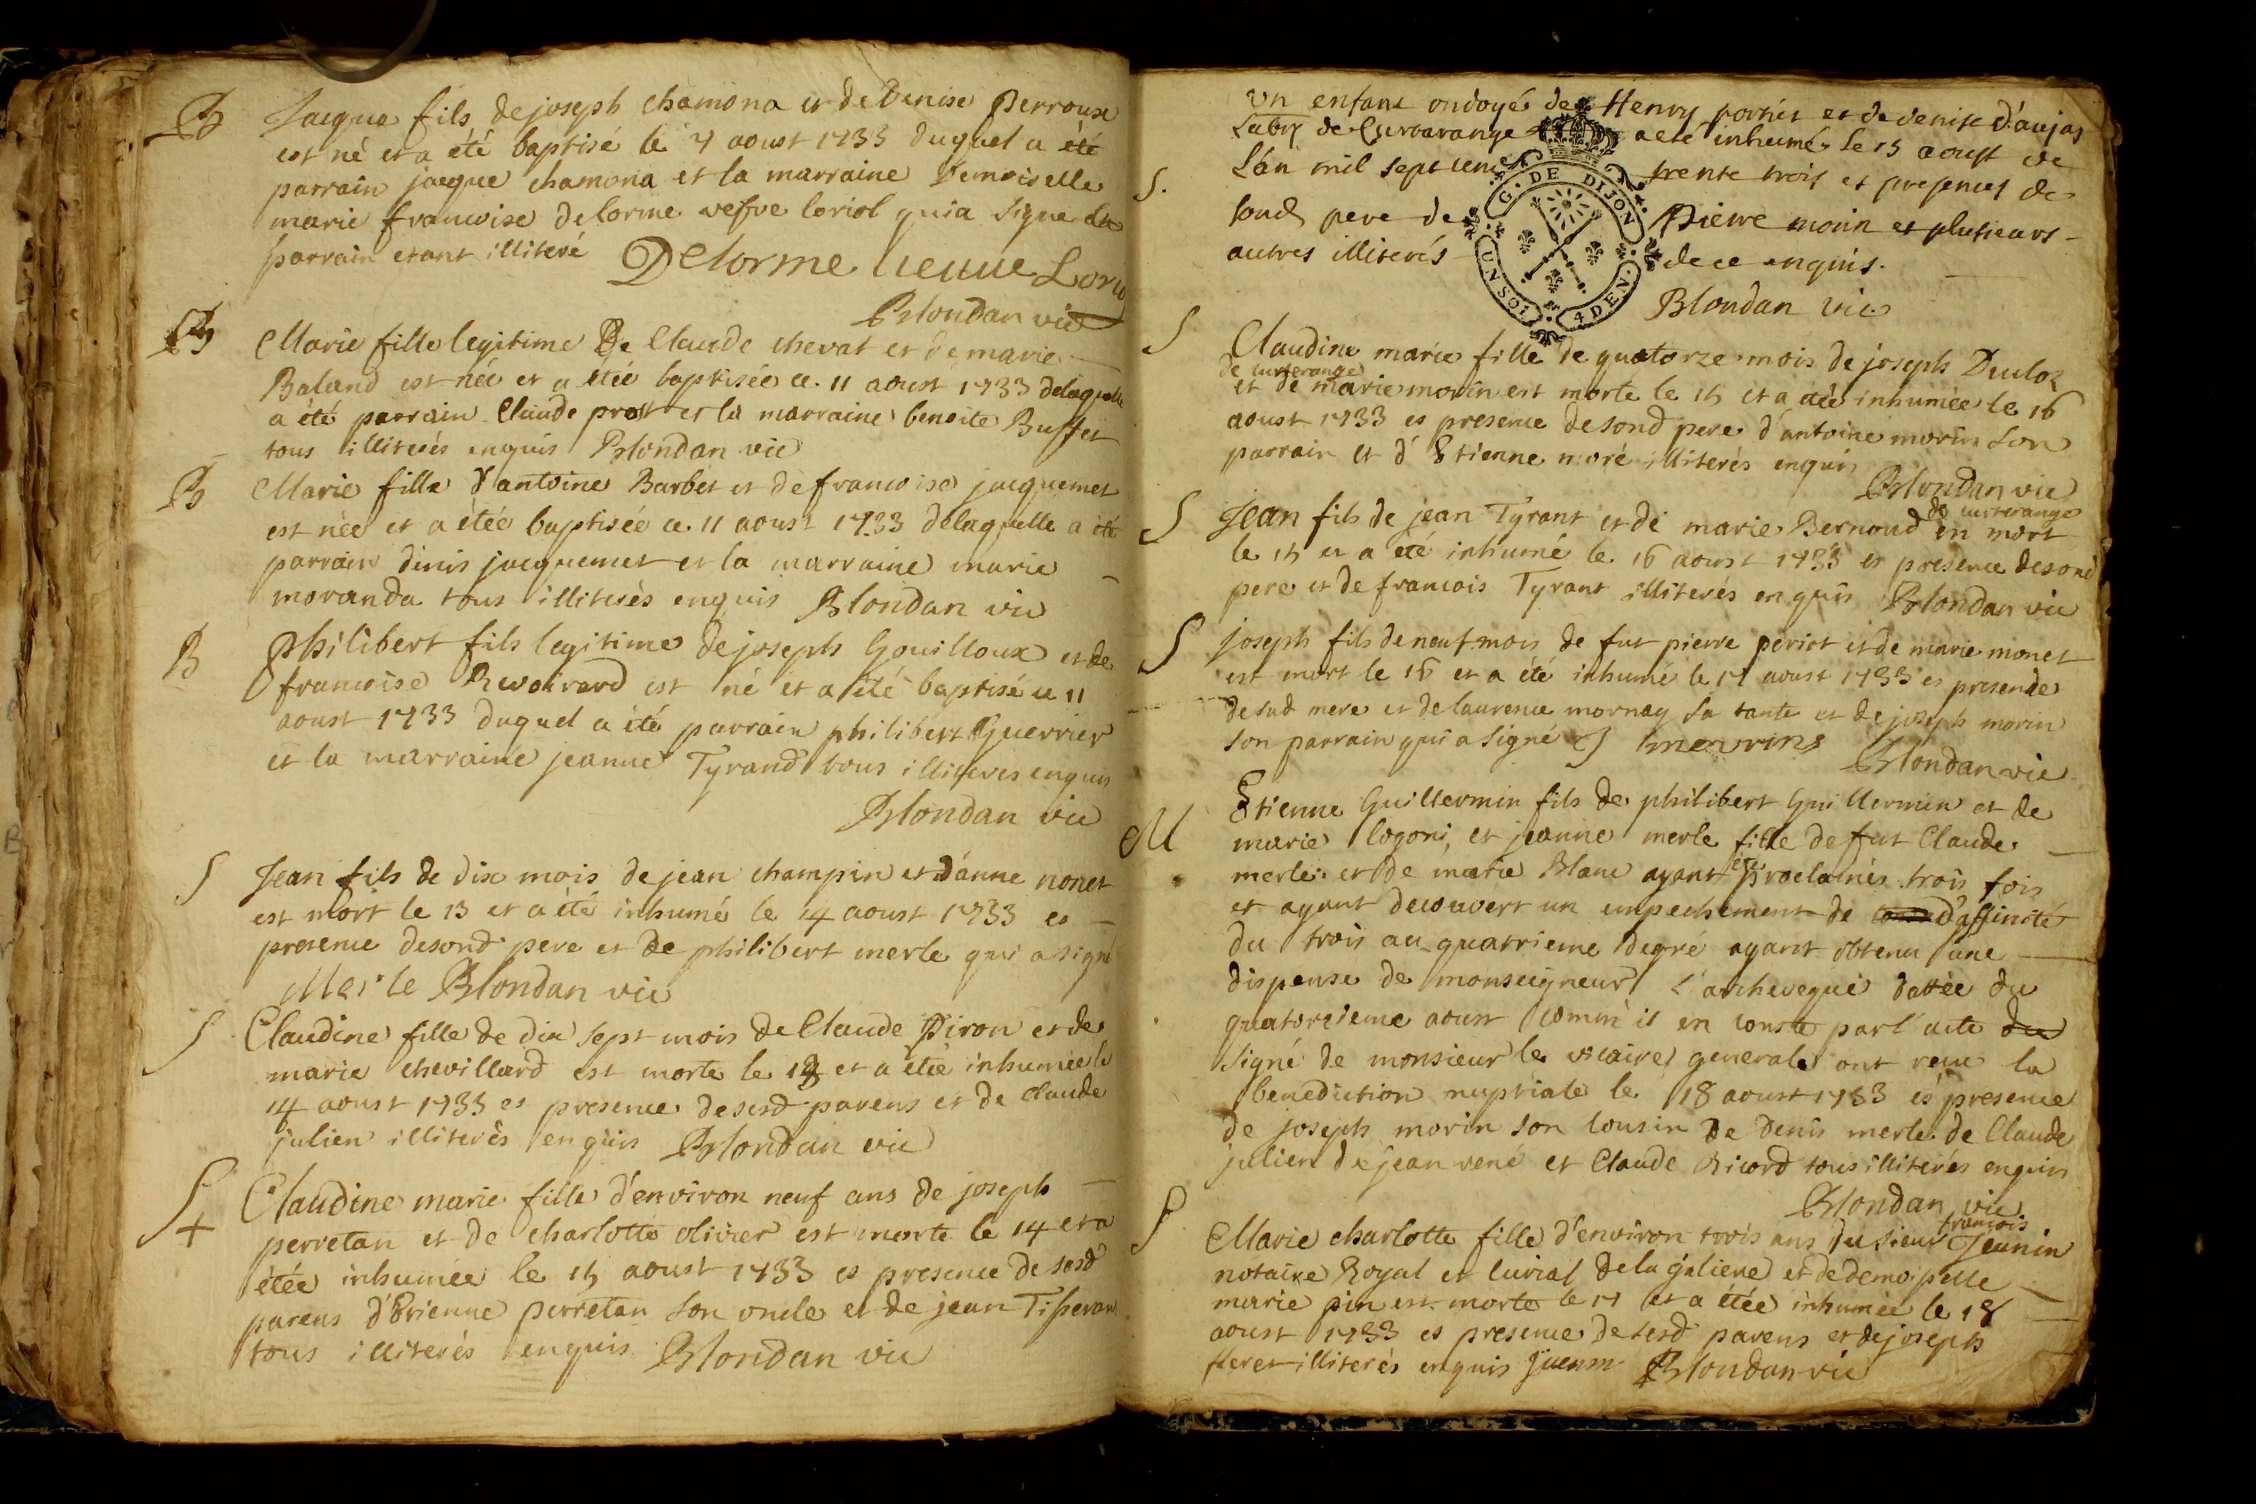 B Jacque fils de joseph chamona et de Denise Perroux
est né et a été baptisé le 7 aoust 1733 duquel a été
parrain jacque chamona et la marraine Demoiselle
marie francoise delorme vefve loriol qui a signe le
parrain etant illiteré Delorme veuve Lorio
Blondan vic
B Marie fille legitime De Claude chevat et de marie
Baland est née et a étée baptisée ce 11 aoust 1733 delaquelle
a été parrain Claude prost et la marraine benoite Buffet
tous illiterés enquis Blondan vic
B Marie fille d'antoine Barbet et de francoise jacquemet
est née et a étée baptisée ce 11 aoust 1733 delaquelle a été
parrain dinis jacquemet et la marraine marie
moranda tous illiterés enquis Blondan vic
B philibert fils legitime de joseph Gouilloux et de
francoise Revoirard est né et a été baptisé ce 11
aoust 1733 duquel a été parrain philibert Guerrier
et la marraine jeanne Tyrand tous illiterés enquis
Blondan vic
S Jean fils de dix mois de jean champin et d'anne nonet
est mort le 13 et a été inhumé le 14 aoust 1733 es
presence desond pere et de philibert merle qui a signé
Merle Blondan vic
S Claudine fille de dix sept mois de Claude Piron et de
marie chevillard est morte le 13 et a étée inhumée le
14 aoust 1733 es presence desesd parens et de claude
julien illiterés enquis Blondan vic
S + Claudine marie fille d'environ neuf ans de joseph
perretan et de charlotte olivier est morte le 14 et a
étée inhumée le 15 aoust 1733 es presence de sesd
parens d'Etienne perretan son oncle et de jean Tisseran
tous illiterés enquis Blondan vic
un enfant ondoyé de Henry portier et de denise d'aujas
de Curtarange a eté inhumé le 15 aoust de
S. L'an mil sept cent trente trois es presences de
sond pere de Pierre morin et plusieurs
autres illiterés de ce enquis.
Blondan vic
G. DE DIJON
UN SOL 4 DEN.
S Claudine marie fille de quatorze mois de joseph Ducloz
de curterange
et de marie morin est morte le 15 et a étée inhumée le 16
aoust 1733 es presence desond pere d'antoine morin son
parrain et d'Etienne moré illiterés enquis
Blondan vic
de curterange
S Jean fils de jean Tyrant et de marie Bernoud en mort
le 15 et a été inhumé le 16 aoust 1733 es presence desond
pere et de francois Tyrant illiterés enquis Blondan vic
S joseph fils de neuf mois de fut pierre periot et de marie monet
est mort le 16 et a été inhumé le 17 aoust 1733 es presence
desad mere et de laurence mornay sa tante et de joseph morin
son parrain qui a signé J mourins
Blondan vic
Etienne Guillermin fils de philibert Guillermin et de
M marie logoni, et jeanne merle fille de fut Claude
été
merle et de marie Blanc ayant proclamés trois fois
et ayant decouvert un empechement de d'affinité
du trois au quatrieme degré ayant obtenu une
dispense de monseigneur l'archeveque dattée du
quatorzieme aoust comm'il en conste par l'acte du
signé de monsieur le vicaire generale ont recu la
benediction nuptiale le 18 aoust 1733 es presence
de joseph morin son cousin de Denis merle de Claude
julien de jean rené et Claude Ricord tous illiterés enquis
Blondan vic
francois
S Marie charlotte fille d'environ trois ans du sieur Jeunin
notaire Royal et curial de la galiere et de demoiselle
marie pin est morte le 17 et a étée inhumée le 18
aoust 1733 es presence de sesd parens et de joseph
feret illiterés enquis Jüenin Blondan vic